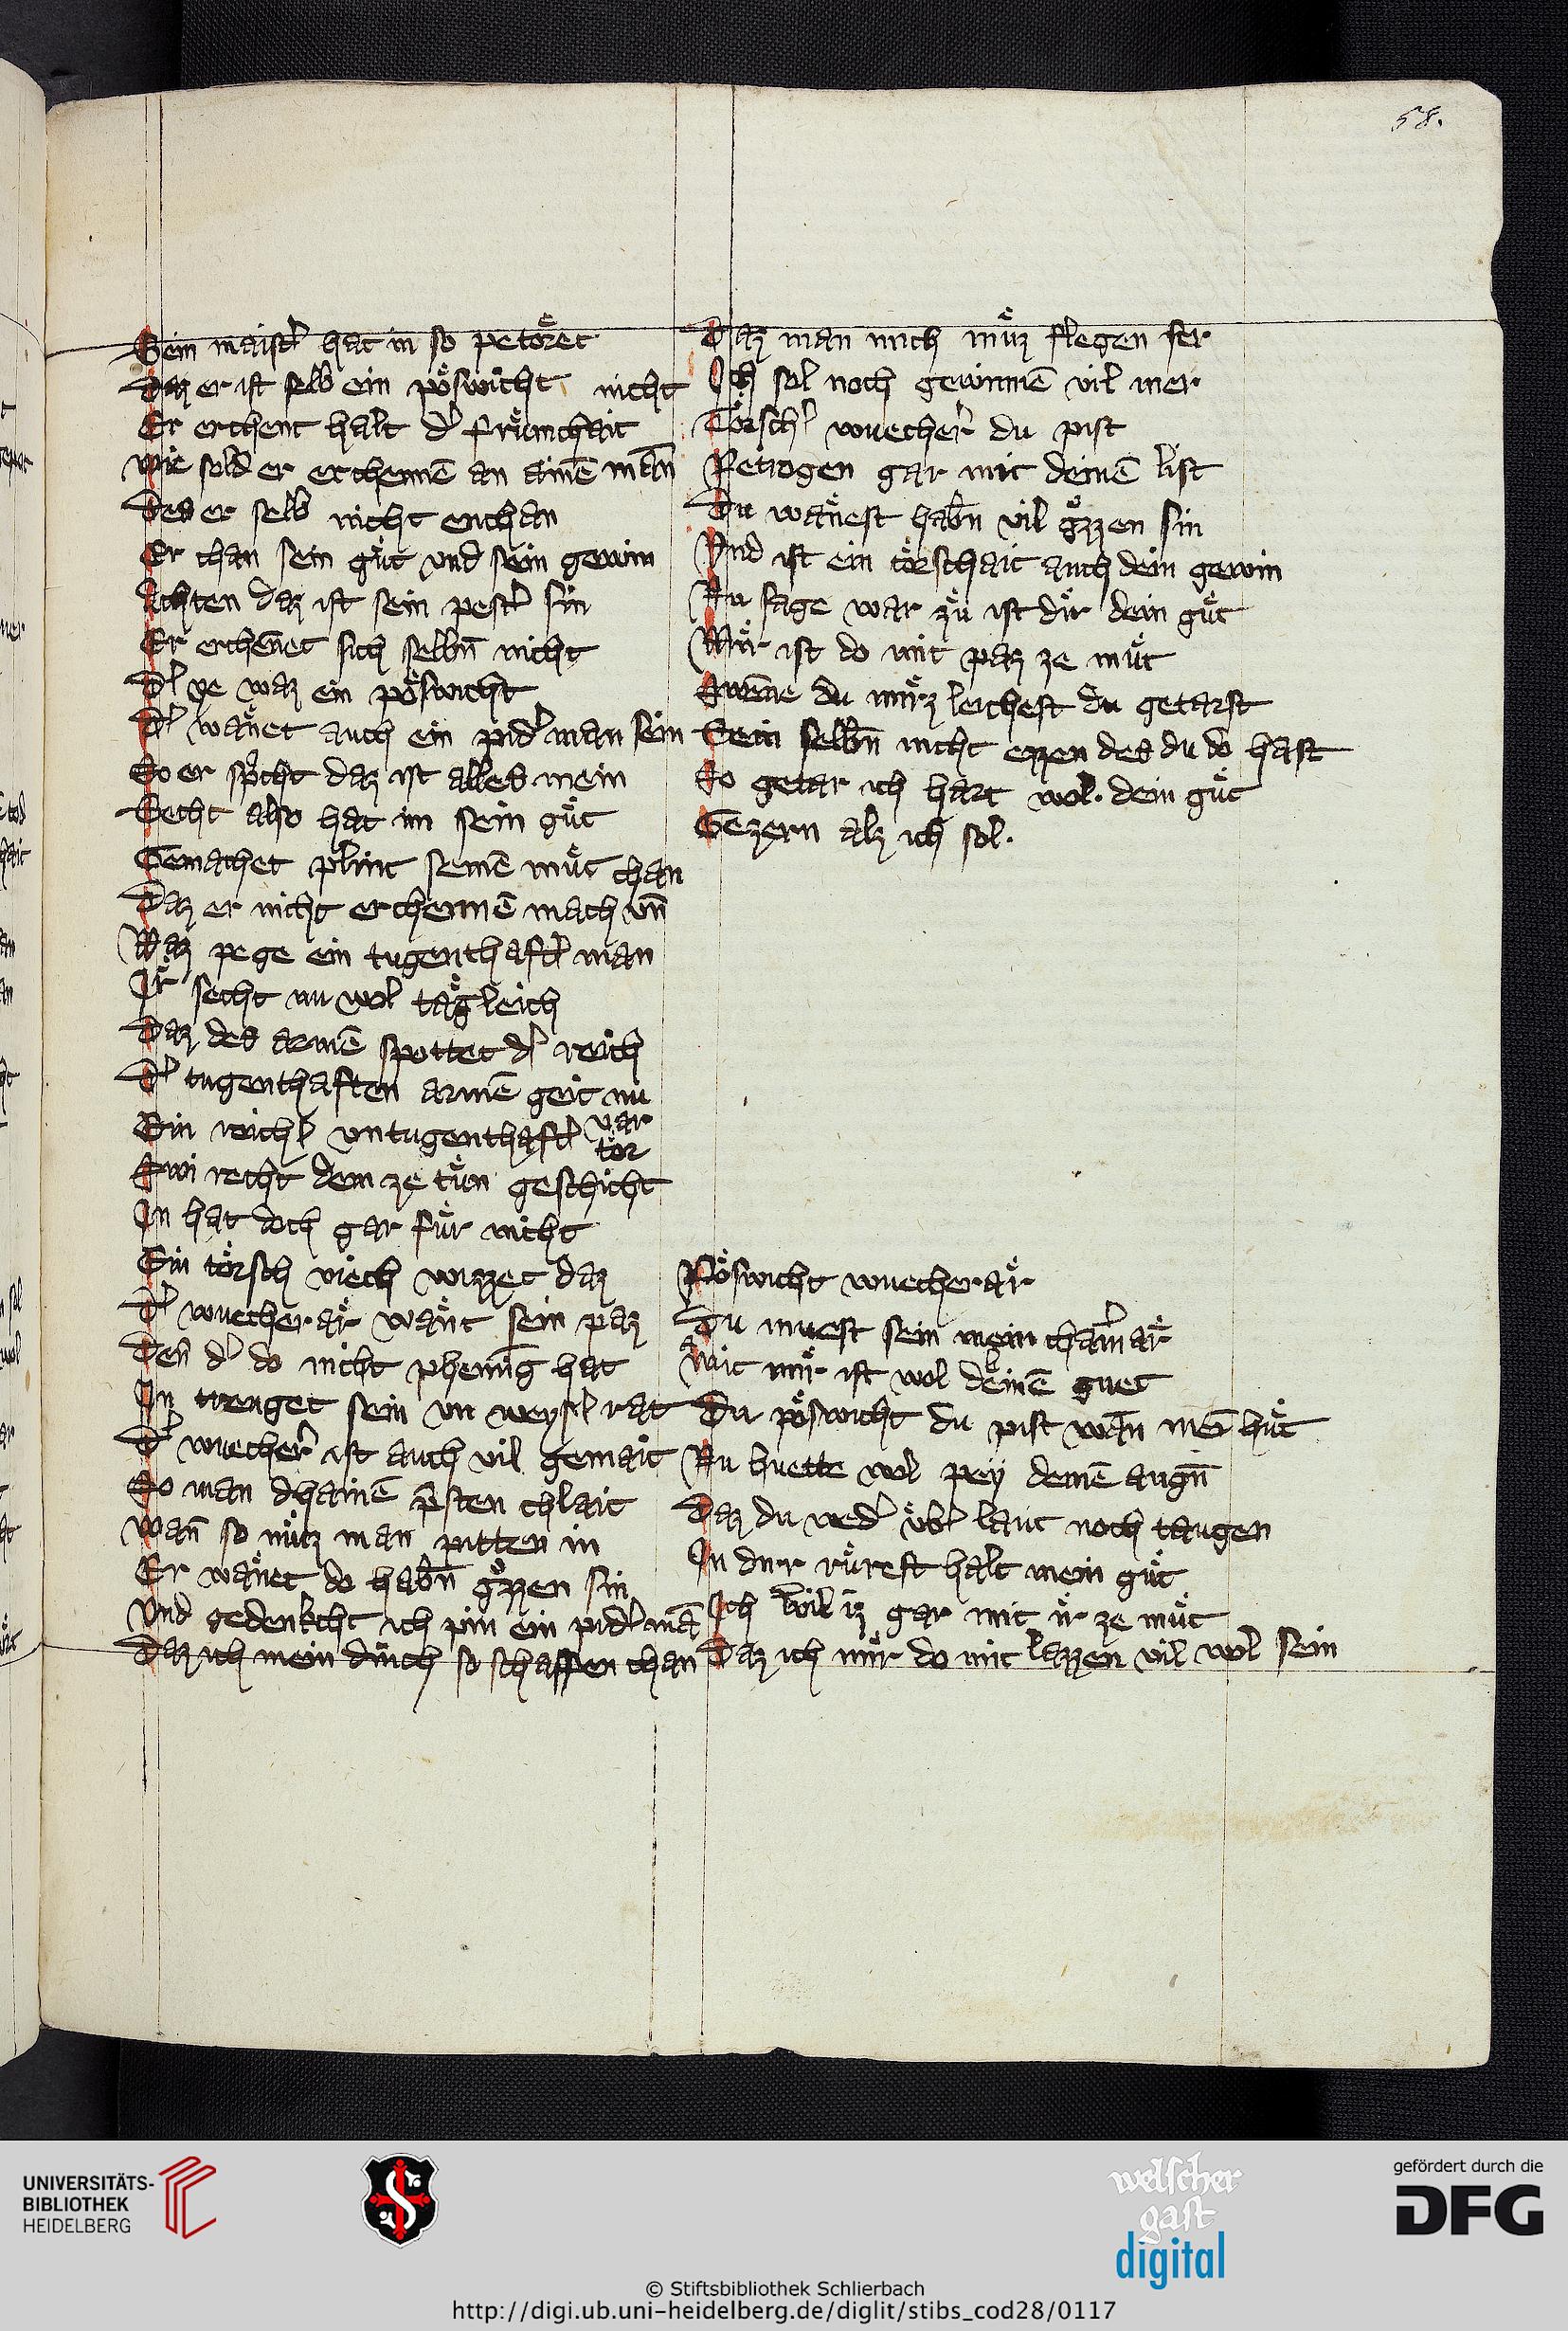 58.
Sein maist͛ hat in so petöret
Daz er ist selb ein pöswicht nicht
Er erchent halt d͛ früm̄chait
wie sold er erchennē an ainē man̄
Des er selb nicht enchan
Er chan sein guͤt vnd sein gewin
Achten daz ist sein pest͛ sin
Er erchen̄et sich selbn̄ nicht
D͛ ye waz ein pöswicht
D͛ wänet auch ein pid͛ man sein
So er spͥcht daz ist alles mein
Secht also hat im sein guͤt
Gemachet plint seinē muͤt chan
Daz er nicht erchennē mach vn̄
Waz pege ein tugenthaft͛ man
Ir secht nu wol tägleich
Daz des armē spottet d͛ reich
D͛ tugenthaften armē geit nu
Ein reich͛ vntugenthaft͛ var
tör
Swi recht dem ze tuͤn geschicht
In hat doch gar fuͤr nicht
Ein törsch viech wizzet daz
D͛ wuecherär wänt sein paz
Den̄ d͛ do nicht phennig hat
In trenget sein vn weys͛ rat
D͛ wuecher͛ ist auch vil gemait
So man dhainē p̄sten chlait
wan̄ so muͤz man pitten in
Er wänet do habn̄ gͦzzen sin
Vnd gedenkcht ich pin ein pid͛ mā
Daz ich mein dinch so schaffen chan
Daz man mich muͤz flegen ser
Ich sol noch gewinnē vil mer
Törsch͛ wuecher͛ du pist
Petrogen gar mit deinē list
Du wänest habn̄ vil gͦzzen sin
Vnd ist ein törschait auch dein gewin
Nu sage war zuͤ ist dir dein guͤt
Mir ist do mit paz ze muͤt
Swen̄e du mirz leichest du getarst
Sein selbn̄ nicht ezzen des du do hast
So getar ich hart wol. dein guͤt
Gezern alz ich sol.
Pöswicht wuecherär
Du muest sein mein cham͛är
Mit mir ist wol deinē guet
Du pöswicht du pist wan̄ mē huͤt
Nu huette wol pey deinē augn̄
Daz du wed͛ vͤb͛ laut noch taugen
In dir ruͤrest halt mein guͤt
Ich wil iz gar mit ir ze muͤt
Daz ich mir do mit lazzen vil wol sein
UNIVERSITÄTS-
BIBLIOTHEK
HEIDELBERG
welscher
gast
digital
gefördert durch die
DFG
© Stiftsbibliothek Schlierbach
http://digi.ub.uni-heidelberg.de/diglit/stibs_cod28/0117